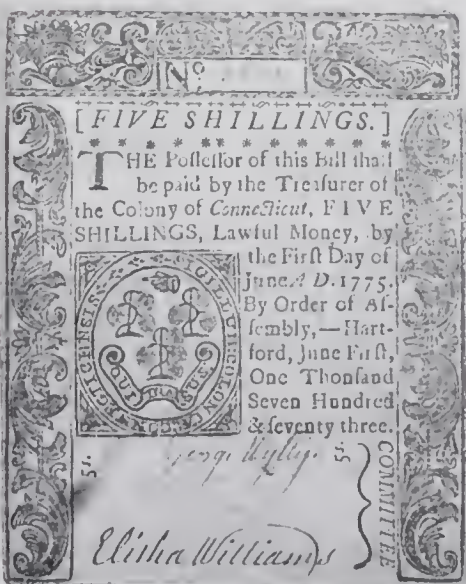 Nº
[FIVE SHILLINGS.]
THE Poſſeſſor of this Bill ſhall
be paid by the Treaſurer of
the Colony of Connecticut, FIVE
SHILLINGS, Lawful Money, by
the Firſt Day of
June A D. 1775.
By Order of Aſ-
ſembly,—Hart-
ford, June Firſt,
One Thouſand
Seven Hundred
& ſeventy three.
SIGILLUM COLON
5s. 5s.
COMMITTEE
Elisha Williams